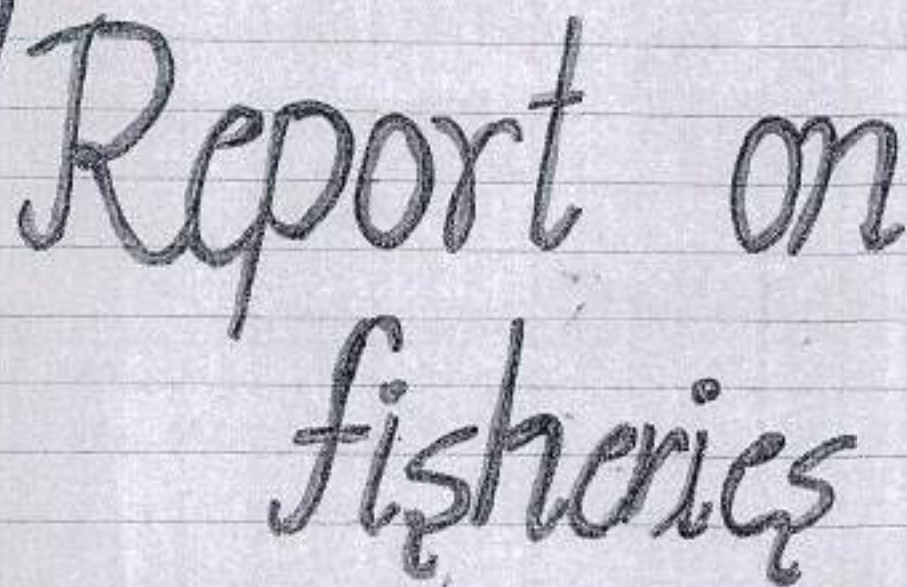 Report on
fisheries